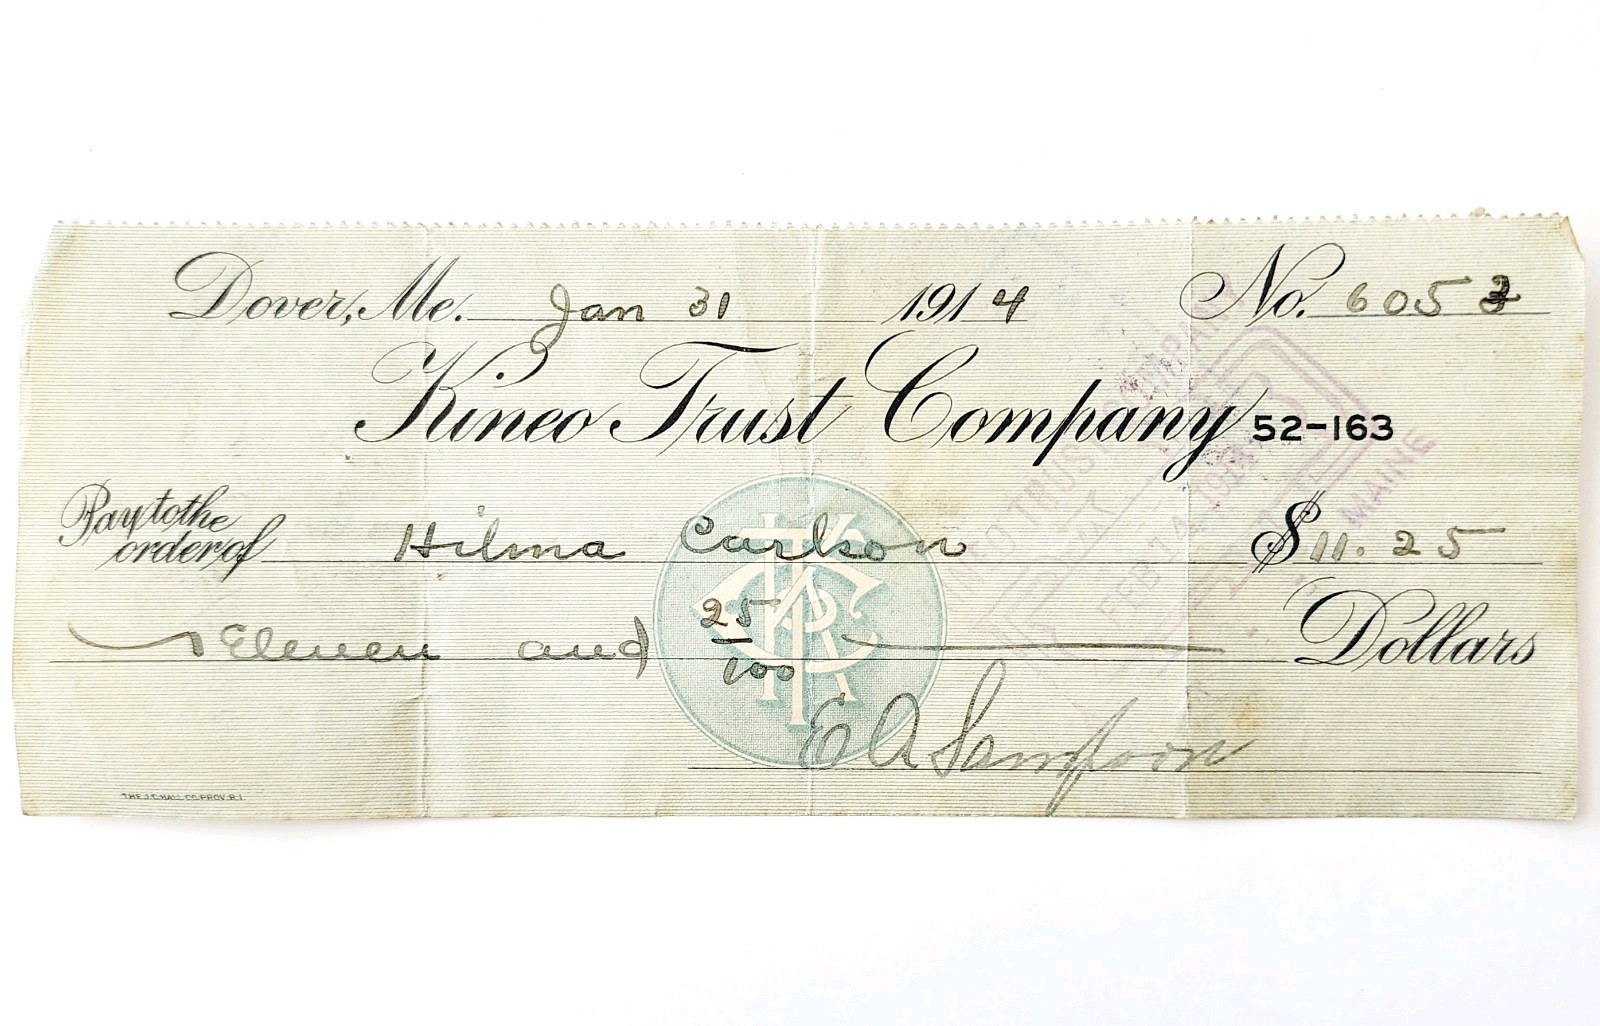 Dover, Me. Jan 31 1914 No. 6053
Kineo Trust Company 52-163
Pay to the order of Hilma Carlson $11.25
Eleven and 25/100 Dollars
E A Sampson
THE J.C. HALL CO. PROV. R.I.
TRUST COMPANY
FEB 1914
MAINE
KTC